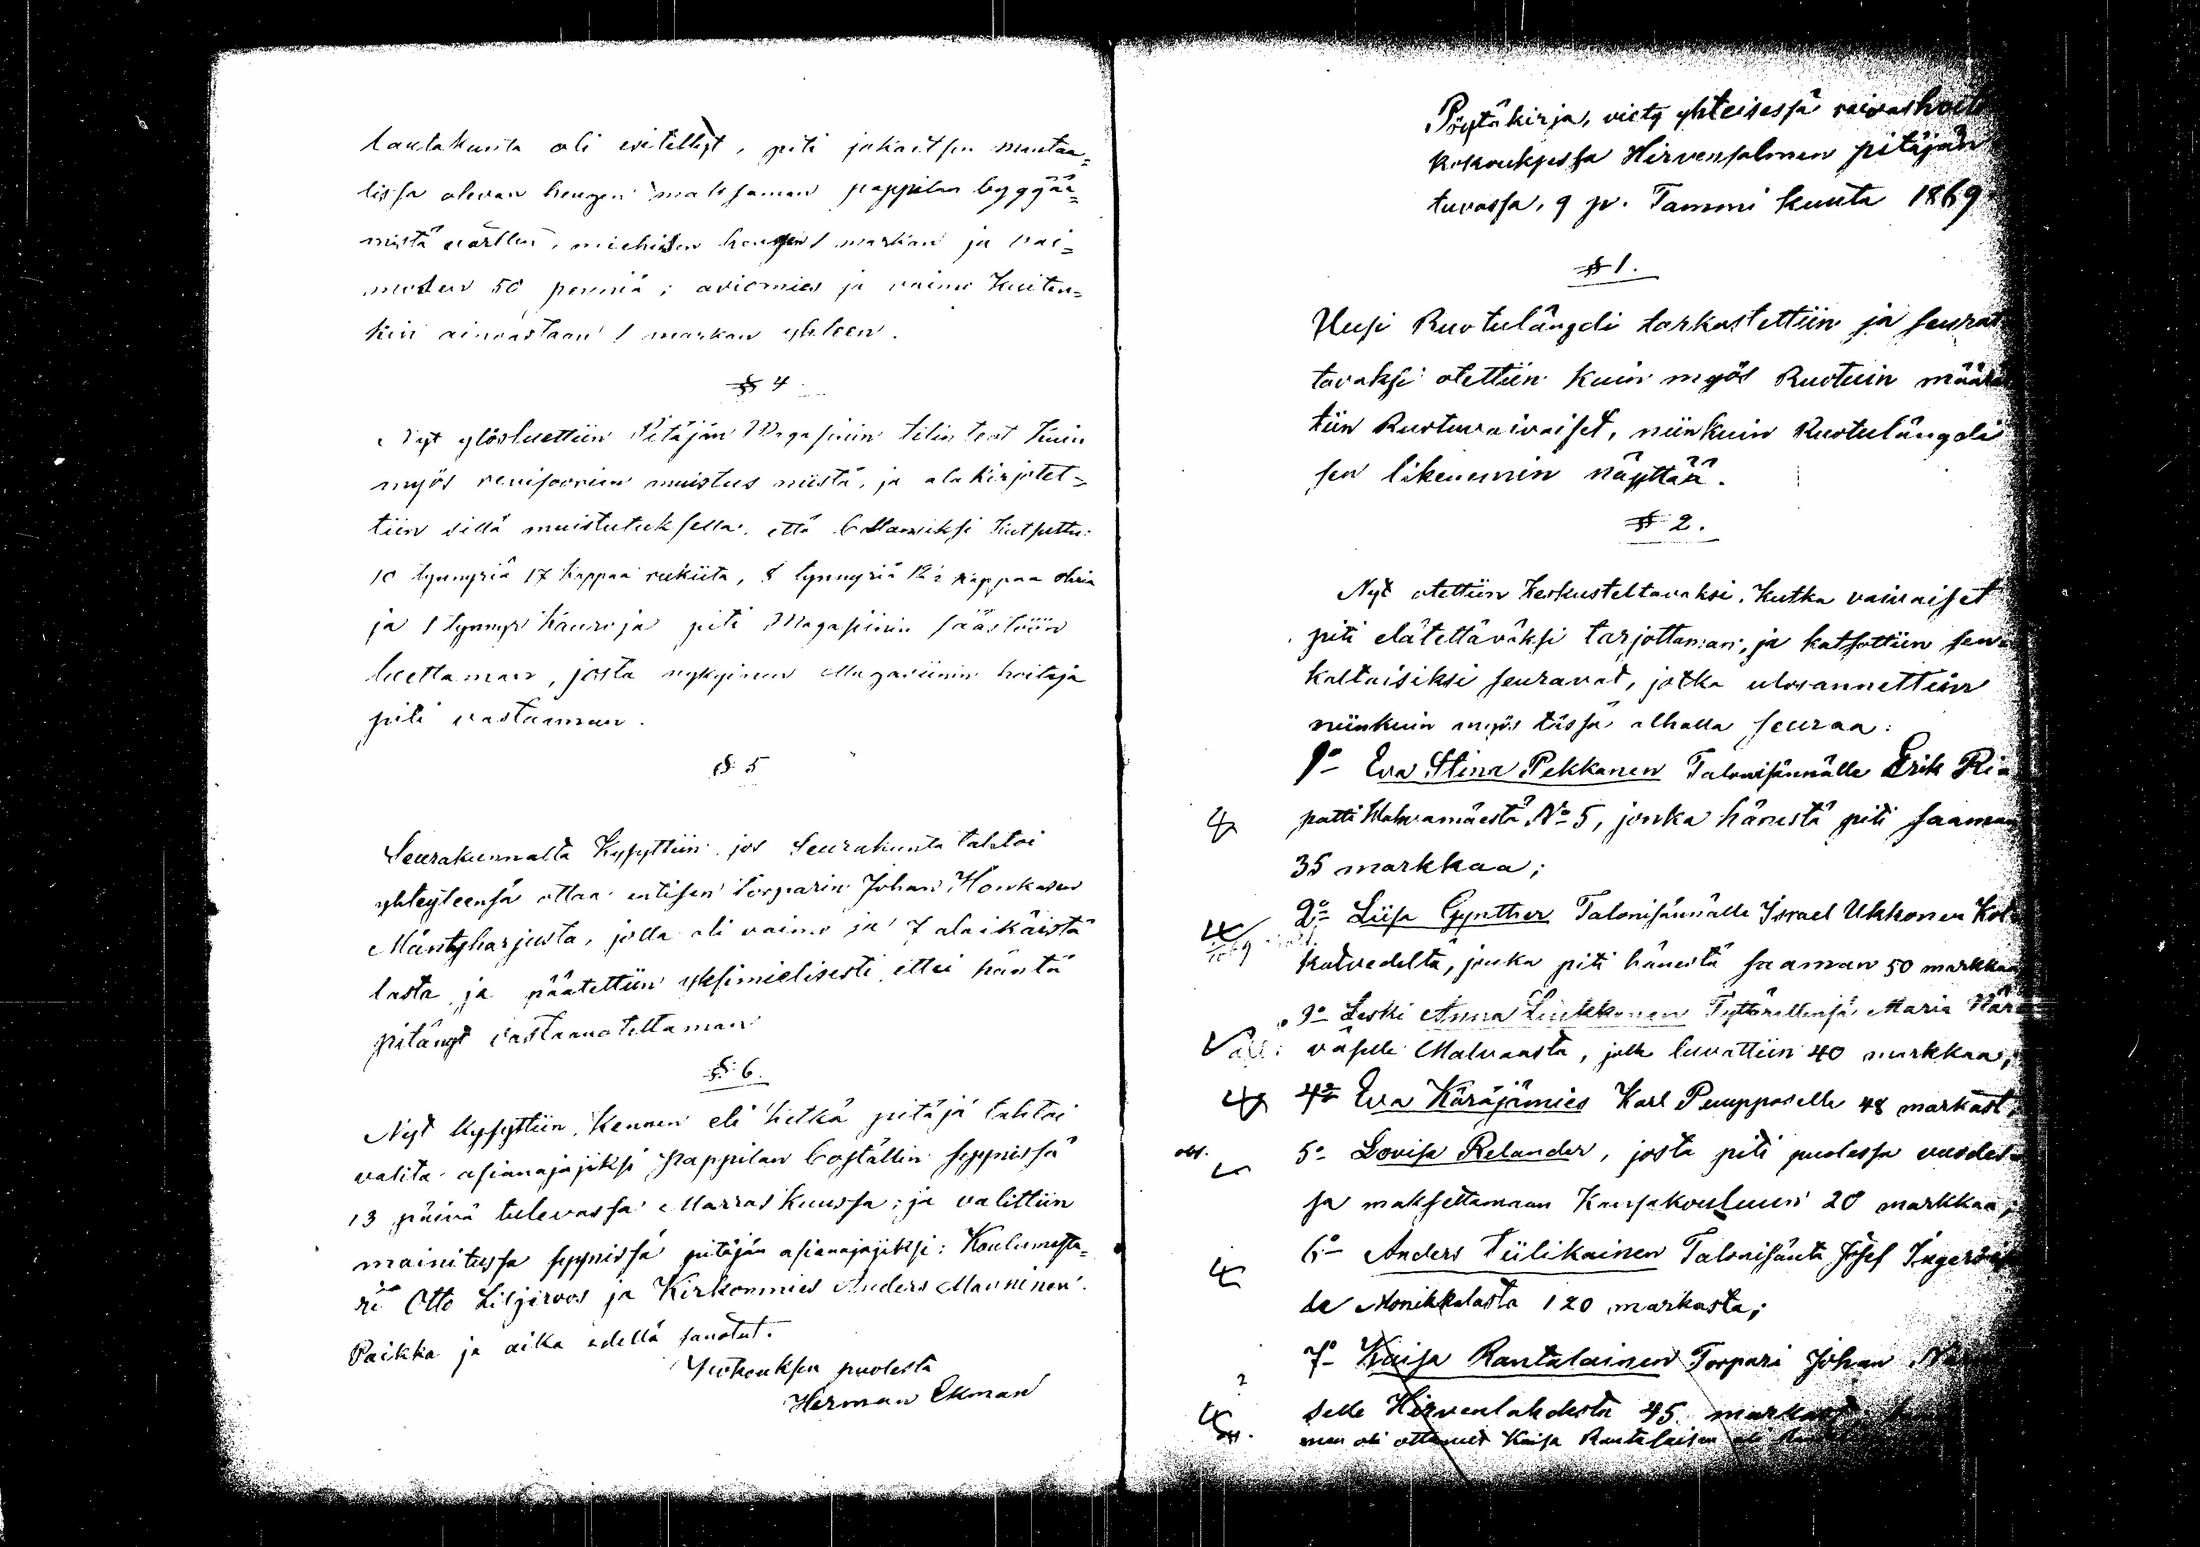 lautakunta oli esitellyt, piti jokaitsen mantaa-
lissa olevan hengen maksaman pappilan byggää-
mistä vartten, miehisen hengen 1 markan ja vai-
mosen 50 penniä; aviomies ja vaimo kuiten-
kin ainoastaan 1 markan yhteen.
§ 4
Nyt ylösluettiin Pitäjän Magasinin tilintext kuin
myös revisoorien muistus niistä, ja alakirjotet-
tiin sillä muistutuksella, että kutsuttu
10 tynnyriä 17 kappaa rukiita, 8 tynnyriä 12½ kappaa ohria
ja 1 tynnyr kauroja piti Magasinin säästöön
luettaman, josta nykyinen Magasiinin hoitaja
piti vastaaman.
§ 5
Seurakunnalta kysyttiin jos Seurakunta tahtoi
yhteyteensä ottaa entisen torparin Johan Honkasen
Mäntyharjusta, jolla oli vaimo ja 7 alaikäistä
lasta, ja päätettiin yksimielisesti ettei häntä
pitänyt vastaanotettaman
§ 6.
Nyt kysyttiin, kennen eli ketkä pitäjä tahtoi
valita asianajajiksi Pappilan Boställin syynissä
13 päivä tulevassa Marraskuussa; ja valittiin
mainitussa syynissä pitäjän asianajajiksi: Koulumesta-
ri Otto Liljeroos ja Kirkonmies Anders Manninen.
Paikka ja aika edellä sanotut.
Kokouksen puolesta
Herman Ekman
Pöytäkirja, viety yhteisessä vaivashoito
kokouksessa Hirvensalmen pitäjän
tuvassa, 9 p. Tammi kuuta 1869.
§ 1.
Uusi Ruotulängdi tarkastettiin ja seurat
tavaksi otettiin kuin myös Ruotuin määrät
tiin Ruotuvaivaiset, niinkuin Ruotulängdi
sen likemmin näyttää.
§ 2.
Nyt otettiin keskusteltavaksi, kutka vaivaiset
piti elätettäväksi tarjottaman, ja katsottiin sen
kaltaisiksi seuravat, jotka ulosannettiin
niinkuin myös tässä alhalla seuraa:
1o Eva Stina Pekkanen Talonisännälle Erik
patti No 5, jonka hänestä piti saaman
35 markkaa;
2o Liisa Gynther Talonisännälle Israel Ukkonen
katvedeltä, jonka piti hänestä saaman 50 markkaa
3o Leski Anna Liukkonen Tyttärellensä Maria
väselle Malvaasta, jolle luvattiin 40 markkaa;
4o Eva Käräjämies Karl Pumppaselle 48 markast
obs.
5o Lovisa Relander, josta piti puolessa vuodes
sa maksettaman Kansakouluun 20 markkaa;
6o Anders Tiilikainen Talonisäntä Josef
de Monikkalasta 120 markasta;
7o Kaisa Rantalainen Torpari Johan
selle Hirvenlahdesta 45 markast
man oli ottanut Kaisa Rantalaisen